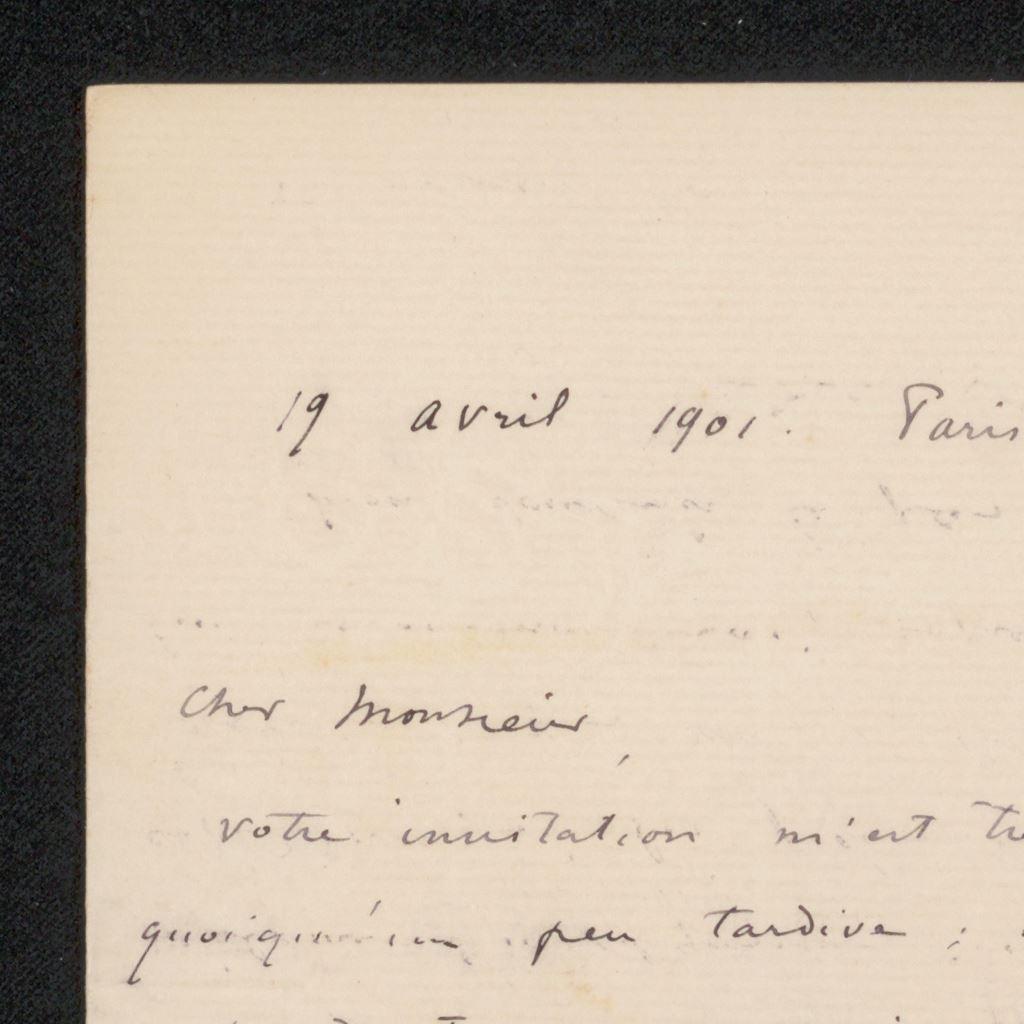 19 avril 1901. Paris
Cher Monsieur,
votre invitation m'est
quoiqu'un peu tardive ;